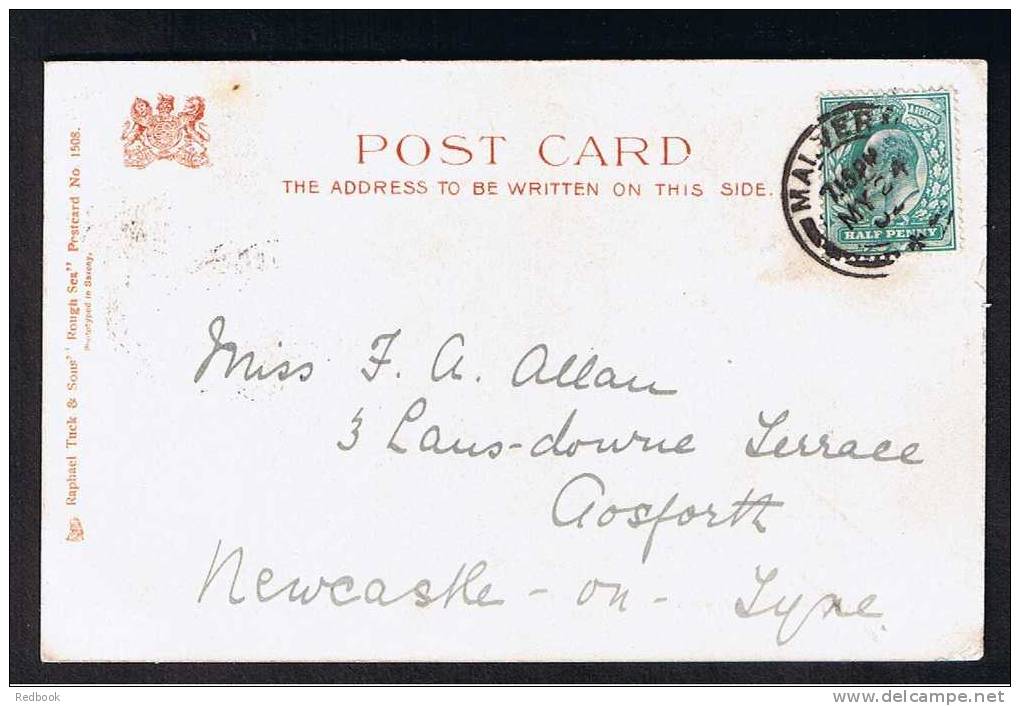 POST CARD
THE ADDRESS TO BE WRITTEN ON THIS SIDE.
HALF PENNY
7 15 PM
MY 24
Miss F. A. Allan
3 Lans-downe Terrace
Gosforth
Newcastle-on-Tyne.
Raphael Tuck & Sons' "Rough Sea" Postcard No 1508.
Phototyped in Saxony.
Redbook
www.delcampe.net